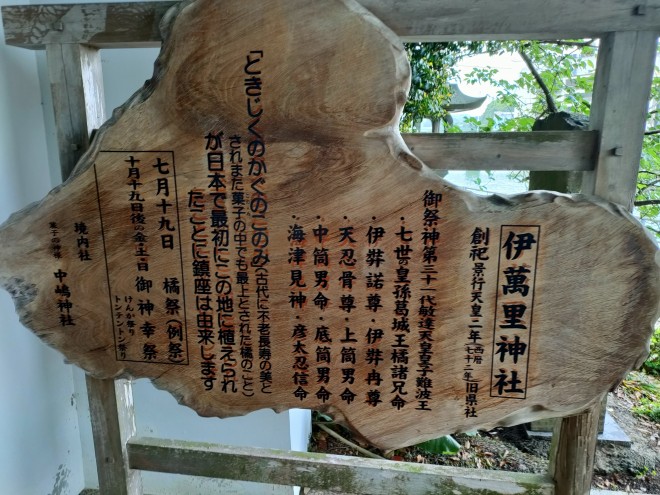 伊萬里神社
創祀 景行天皇二年 西暦七十二年 旧県社
御祭神第三十一代敏達天皇皇子難波王
・七世の皇孫葛城王橘諸兄命
・伊弉諾尊・伊弉冉尊
・天忍骨尊・上筒男命
・中筒男命・底筒男命
・海津見神・彦太忍信命
「ときじくのかぐのこのみ(古代に不老長寿の美と
されまた菓子の中でも最上とされた橘のこと)
が日本で最初にこの地に植えられ
たことに鎮座は由来します
七月十九日 橘祭(例祭)
十月十九日後の金土日 御神幸祭
けんか祭り
トンテントン祭り
境内社
菓子の神様 中嶋神社